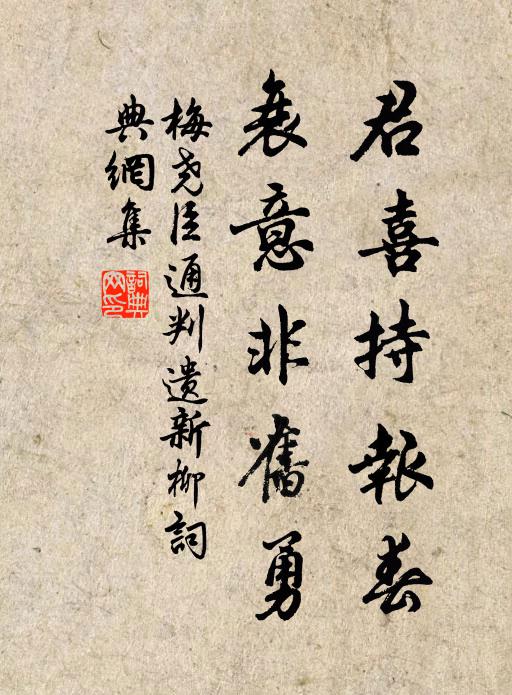 君喜持報春
衰意非舊勇
梅尧臣通判遺新柳詞
典網集
詞典
网印